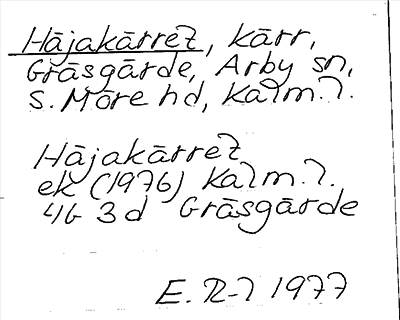 Håjakärret, kärr,
Gräsgärde, Arby sn,
S. Möre hd, Kalm. l.
Håjakärret
ek (1976) Kalm. l.
4G 3d Gräsgärde
E. R-l 1977